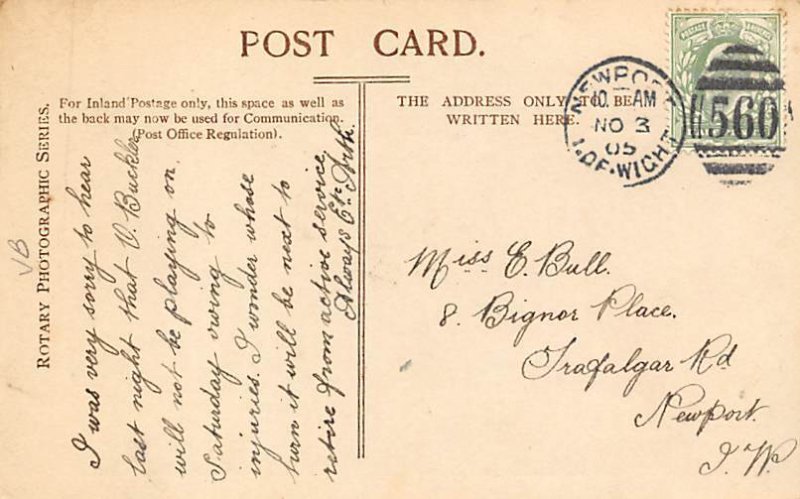 POST CARD.
For Inland Postage only, this space as well as
the back may now be used for Communication.
(Post Office Regulation).
THE ADDRESS ONLY TO BE
WRITTEN HERE.
NEWPORT
10. AM
NO 3
05
I. OF. WIGHT
560
ROTARY PHOTOGRAPHIC SERIES.
VB
I was very sorry to hear
last night that V. Buckler
will not be playing on
Saturday owing to
injuries. I wonder whose
turn it will be next to
retire from active service
Always Etc. Arth.
Miss E. Bull.
8. Bignor Place.
Trafalgar Rd
Newport.
I. W.